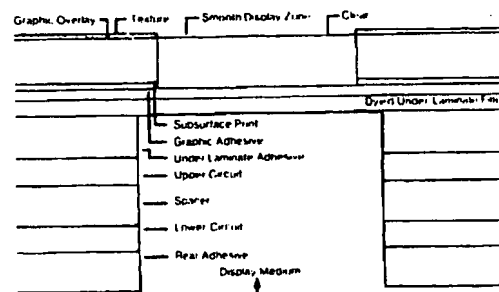 Graphic Overlay
Texture
Smooth Display Zone
Clear
Dyed Under Laminate Film
Subsurface Print
Graphic Adhesive
Under Laminate Adhesive
Upper Circuit
Spacer
Lower Circuit
Rear Adhesive
Display Medium